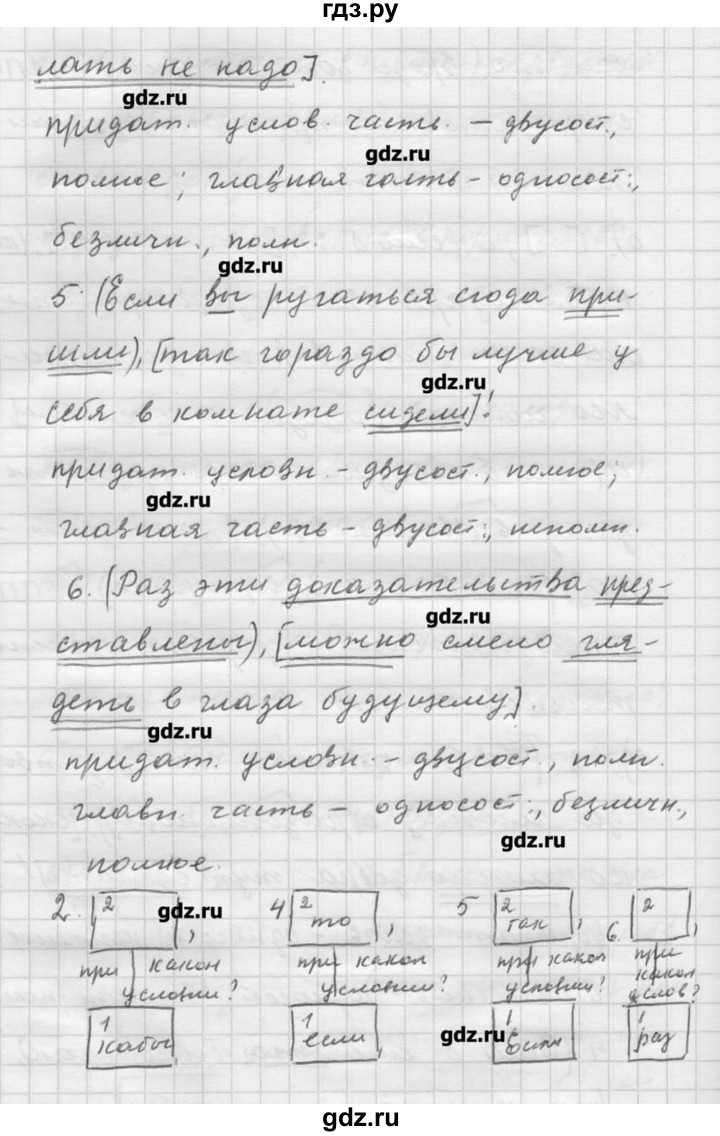 гдз.ру
лать не надо].
gdz.ru
придат. услов. часть. – двусост.,
gdz.ru
полное; главная часть – односост.,
безличн., полн.
gdz.ru
5. (Если вы ругаться сюда при-
шли), [так гораздо бы лучше у
gdz.ru
себя в комнате сидели]!
придат. условн. – двусост., полное;
gdz.ru
главная часть – двусост., неполн.
6. (Раз эти доказательства пред-
gdz.ru
ставлены), [можно смело гля-
деть в глаза будущему].
gdz.ru
придат. условн. – двусост., полн.
главн. часть – односост., безличн.,
gdz.ru
полное.
2. 2 , 4 2 то , 5 2 так , 6. 2 ,
gdz.ru
при каком условии? при каком условии? при каком условии? при каком услов?
1 кабы, 1 если, 1 Если 1 раз
gdz.ru
gdz.ru